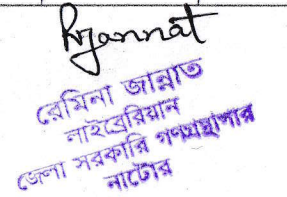 Rjannat
রেমিনা জান্নাত
লাইব্রেরিয়ান
জেলা সরকারি গণগ্রন্থাগার
নাটোর